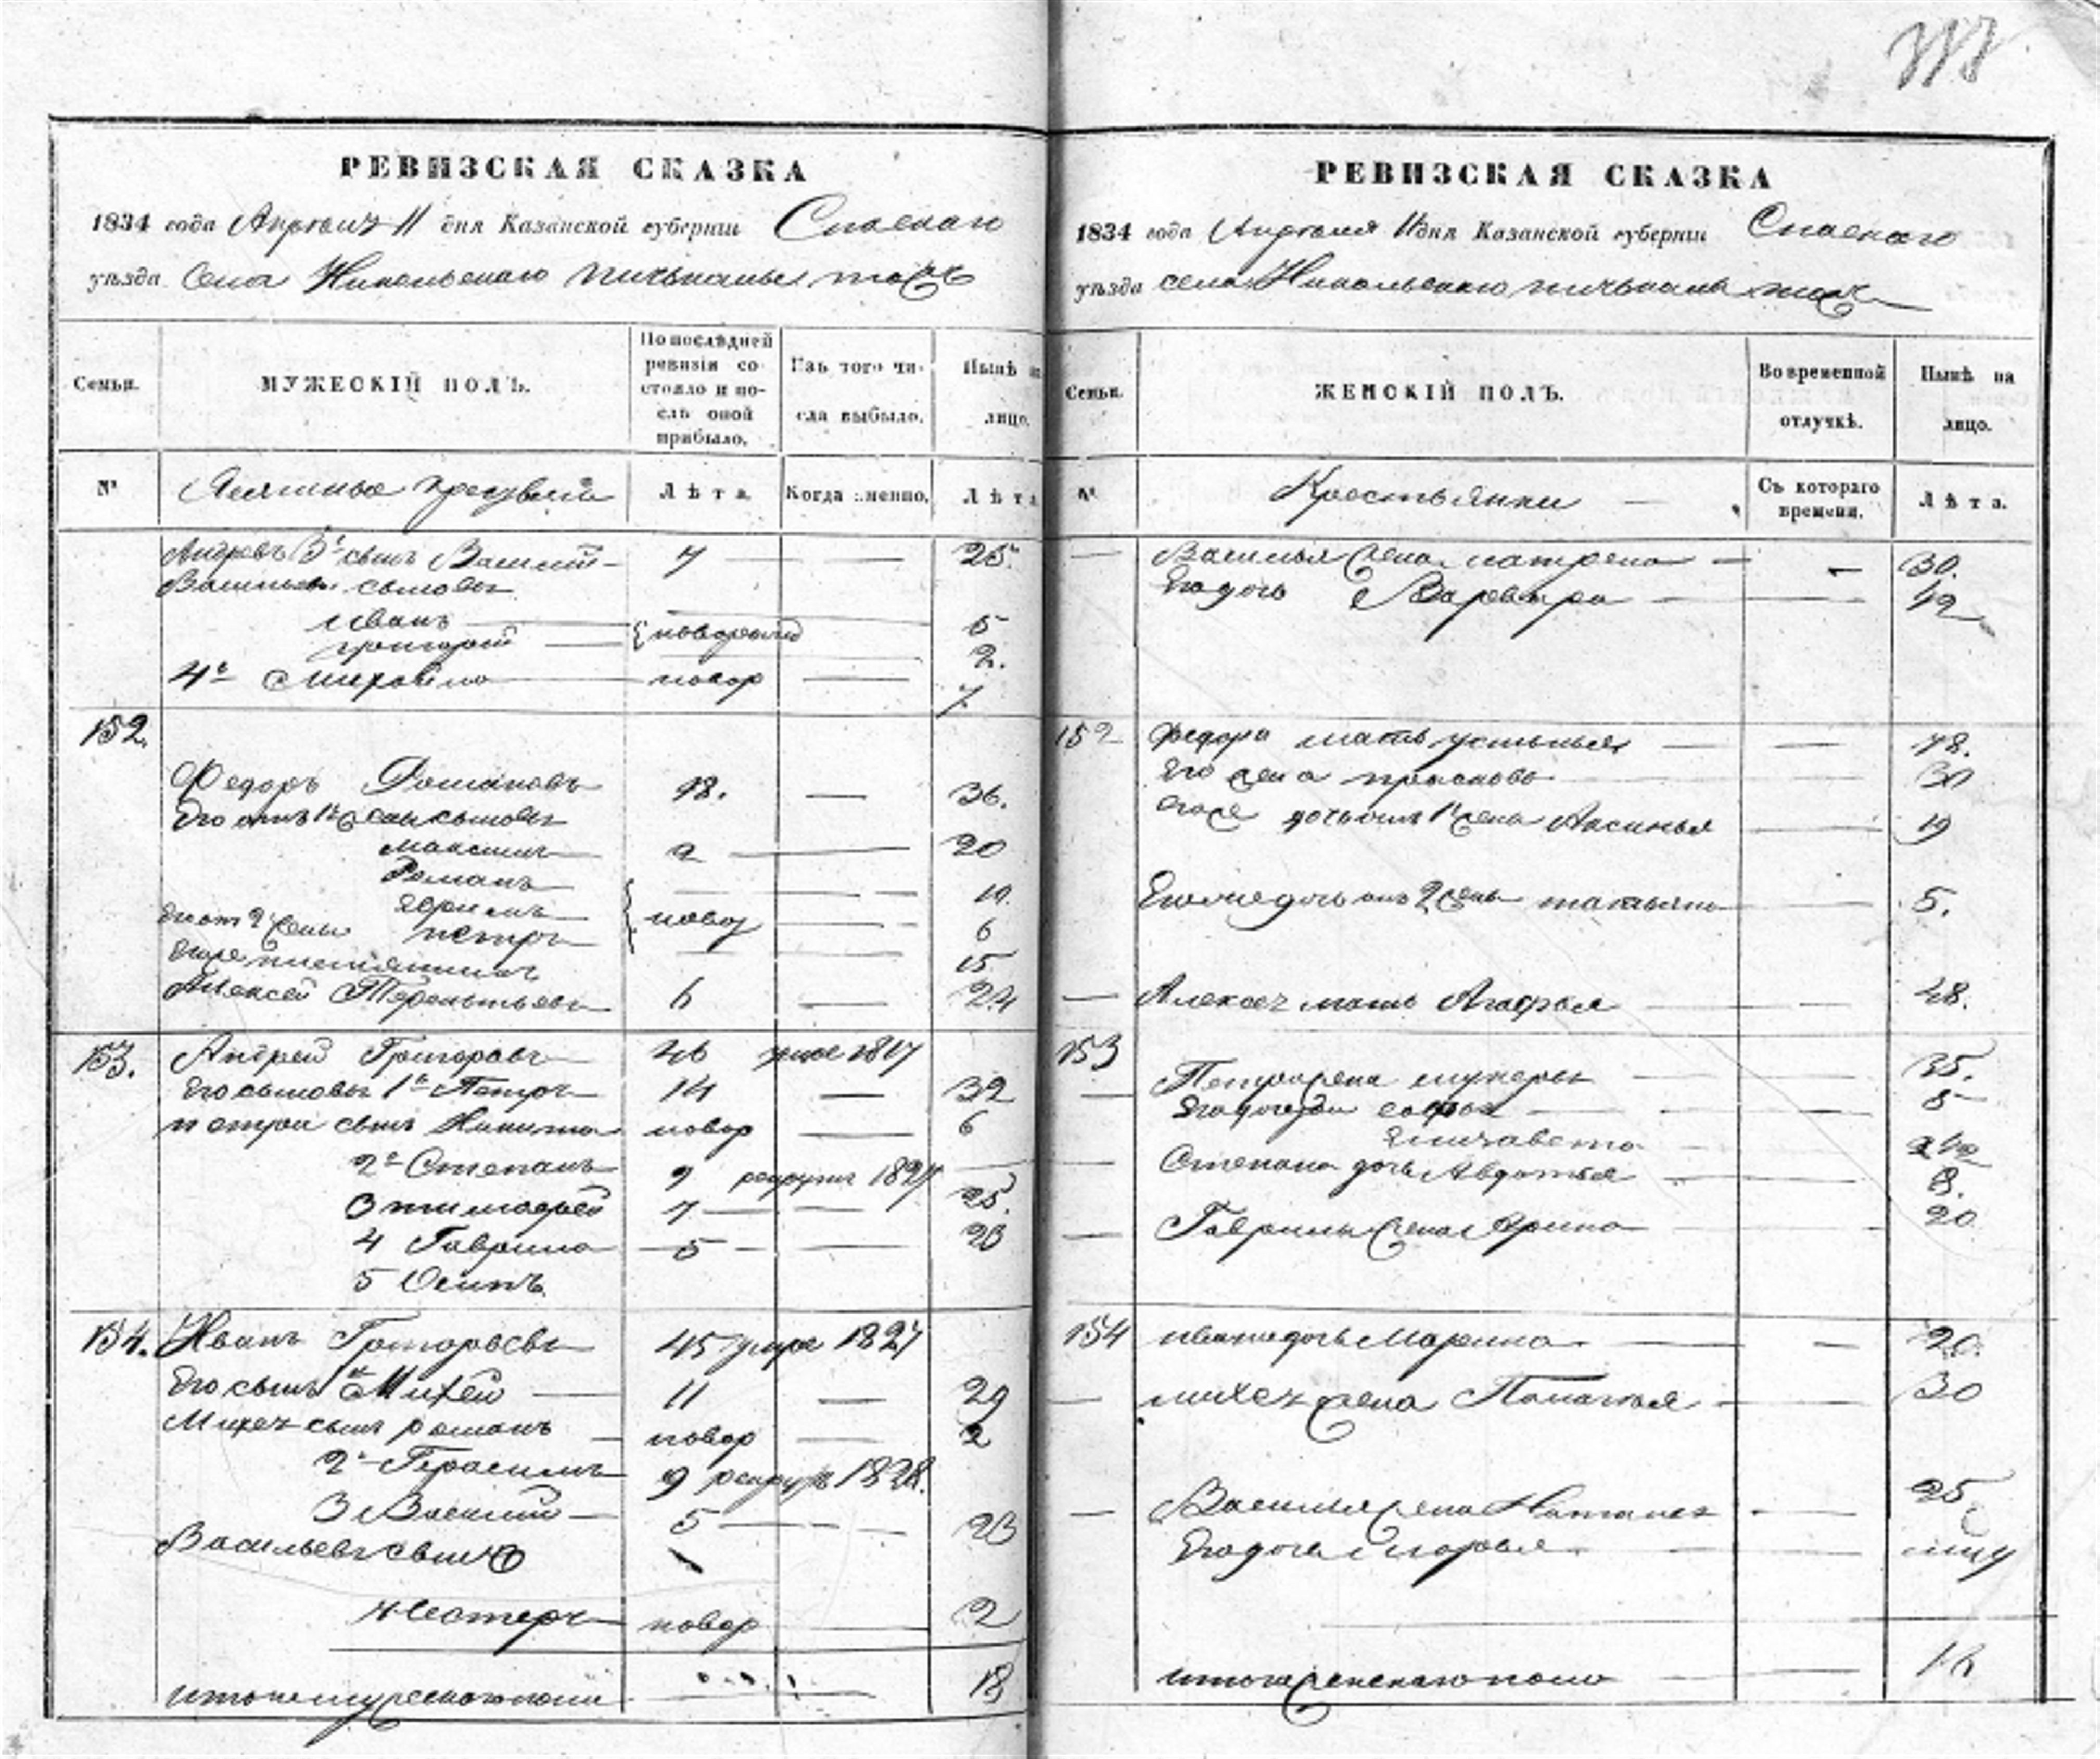 РЕВИЗСКАЯ СКАЗКА
1834 года Апреля 11 дня Казанской губернiи Спаскаго
уѣзда Села Никольскаго
Семьи.
МУЖЕСКIЙ ПОЛЪ.
По послѣдней ревизiи состояло и послѣ оной прибыло.
Изъ того числа выбыло.
Нынѣ на лицо.
№
Лѣта.
Когда именно.
Лѣта
Андреевъ 3й сынъ Василий 7 — 25.
Васильевы сыновья
Иванъ 5
григорей новорожд 2.
4й Михайло новор — 7
152.
Федоръ Романовъ 18. — 36.
Его отъ 1й жены сыновья
Максимъ 2 — 20
Романъ 10.
Ефимъ новор 6
Его от 2 жены петръ 15
Егоже племянникъ
Алексей Терентьевъ 6 — 24
153. Андрей Григорьевъ 46 умре 1817
Его сыновья 1й Петръ 14 — 32
петра сынъ Никита новор — 6
2й Степанъ 9 рекрутъ 182
3 тимофей 7 — 25.
4 Гаврила 5 — 23
5 Осипъ
154. Иванъ Григорьевъ 45 умре 1827
Его сынъ 1й Михей 11 — 29
Михея сынъ романъ новор — 2
2й Герасимъ 9 рекрутъ 1828.
3 Василий 5 — 23
Васильевъ сынъ
Нестеръ новор — 2
итого мужескаго пола 18
РЕВИЗСКАЯ СКАЗКА
1834 года Апреля 11 дня Казанской губернiи Спаскаго
уѣзда села Никольскаго
Семьи.
ЖЕНСКIЙ ПОЛЪ.
Во временной отлучкѣ.
Нынѣ на лицо.
№
Крестьянки
Съ котораго времени.
Лѣта.
— Василья жена матрена — 30.
Его дочь Варвара — 1/2
152 федора мать устинья — 78.
Его жена прасковья 30
Егоже дочь отъ 1й жены Аксинья — 19
Егоже дочь отъ 2 жены татьяна — 5.
— Алексея мать Агафья — 48.
153
— Петра жена 35.
Его дочери софья — 8
Елизавета
Степана дочь Авдотья — 8.
— Гаврилы жена Арина — 20
154 ивана дочь Марина — 20.
— михея жена Пелагея — 30
— Василья жена Наталья — 25.
Его дочь
итого женскаго пола 16